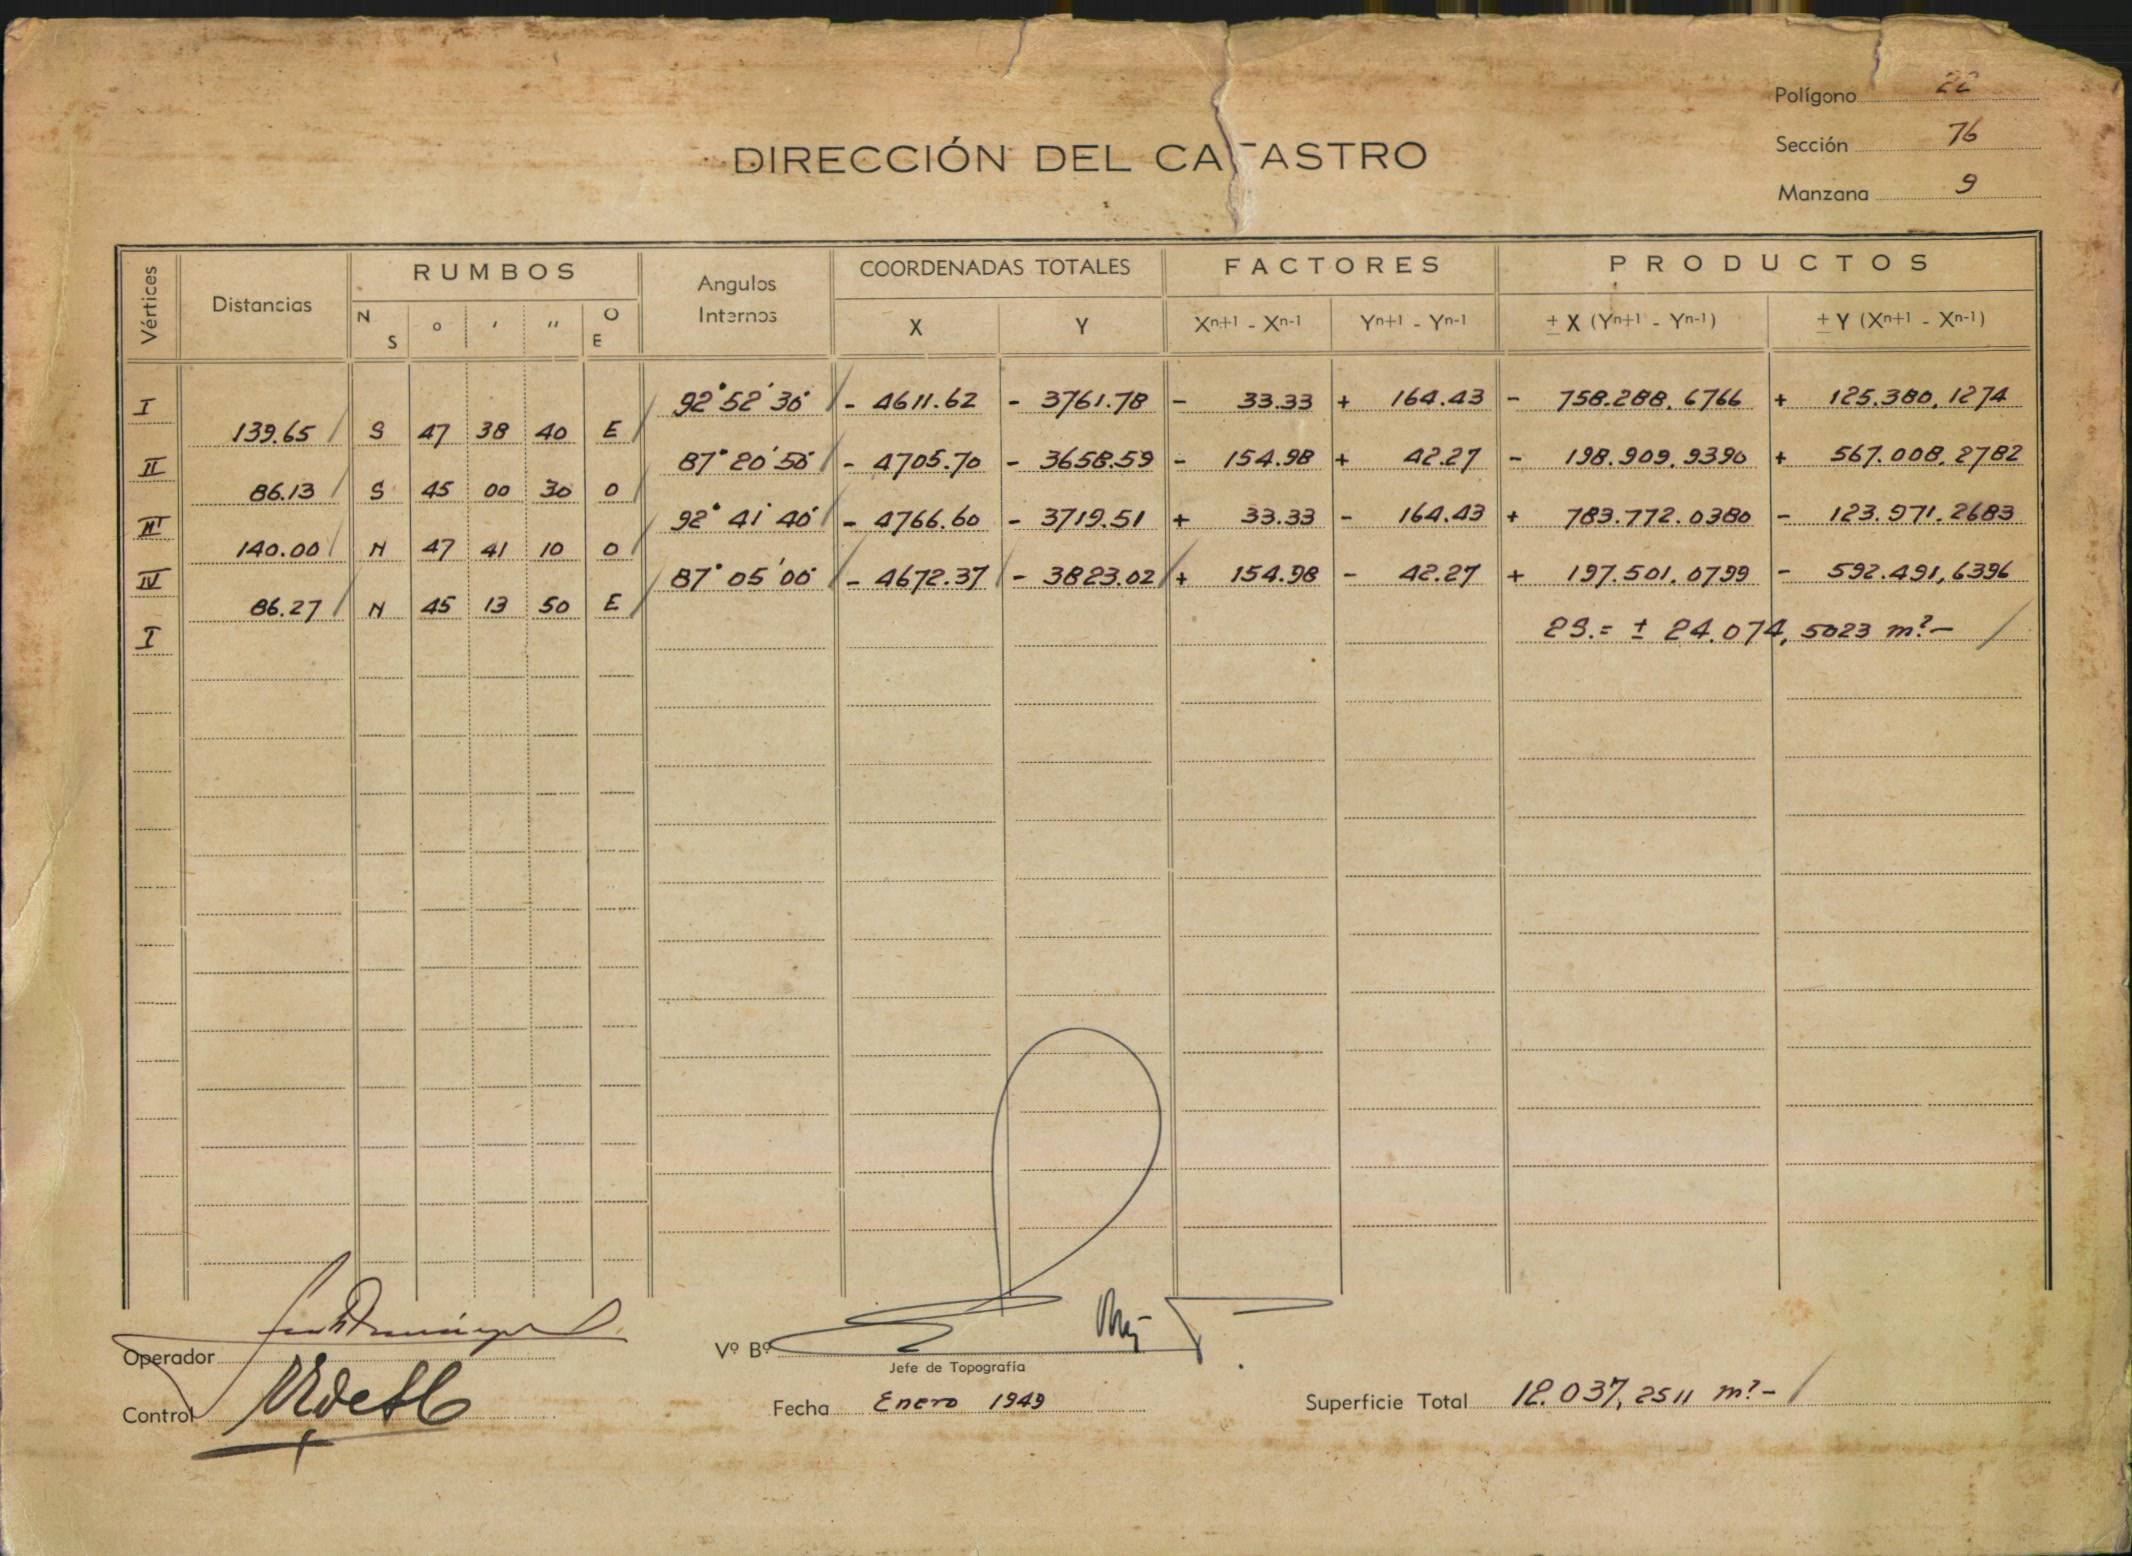 Polígono 22
DIRECCIÓN DEL CATASTRO
Sección 76
Manzana 9
Vértices Distancias RUMBOS Angulos Internos COORDENADAS TOTALES FACTORES PRODUCTOS
N S ° ' '' O E X Y Xn+1 - Xn-1 Yn+1 - Yn-1 ± X (Yn+1 - Yn-1) ± Y (Xn+1 - Xn-1)
I 92° 52' 30" - 4611.62 - 3761.78 - 33.33 + 164.43 - 758.288.6766 + 125.380,1274
139.65 S 47 38 40 E
II 87° 20' 50" - 4705.70 - 3658.59 - 154.98 + 42.27 - 198.909.9390 + 567.008.2782
86.13 S 45 00 30 O
III 92° 41' 40" - 4766.60 - 3719.51 + 33.33 - 164.43 + 783.772.0380 - 123.971.2683
140.00 N 47 41 10 O
IV 87° 05' 00" - 4672.37 - 3823.02 + 154.98 - 42.27 + 197.501.0799 - 592.491,6396
86.27 N 45 13 50 E
I 2S.= ± 24.074,5023 m²-
Operador
Vº Bº
Jefe de Topografía
Control
Fecha Enero 1949
Superficie Total 12.037,2511 m²-